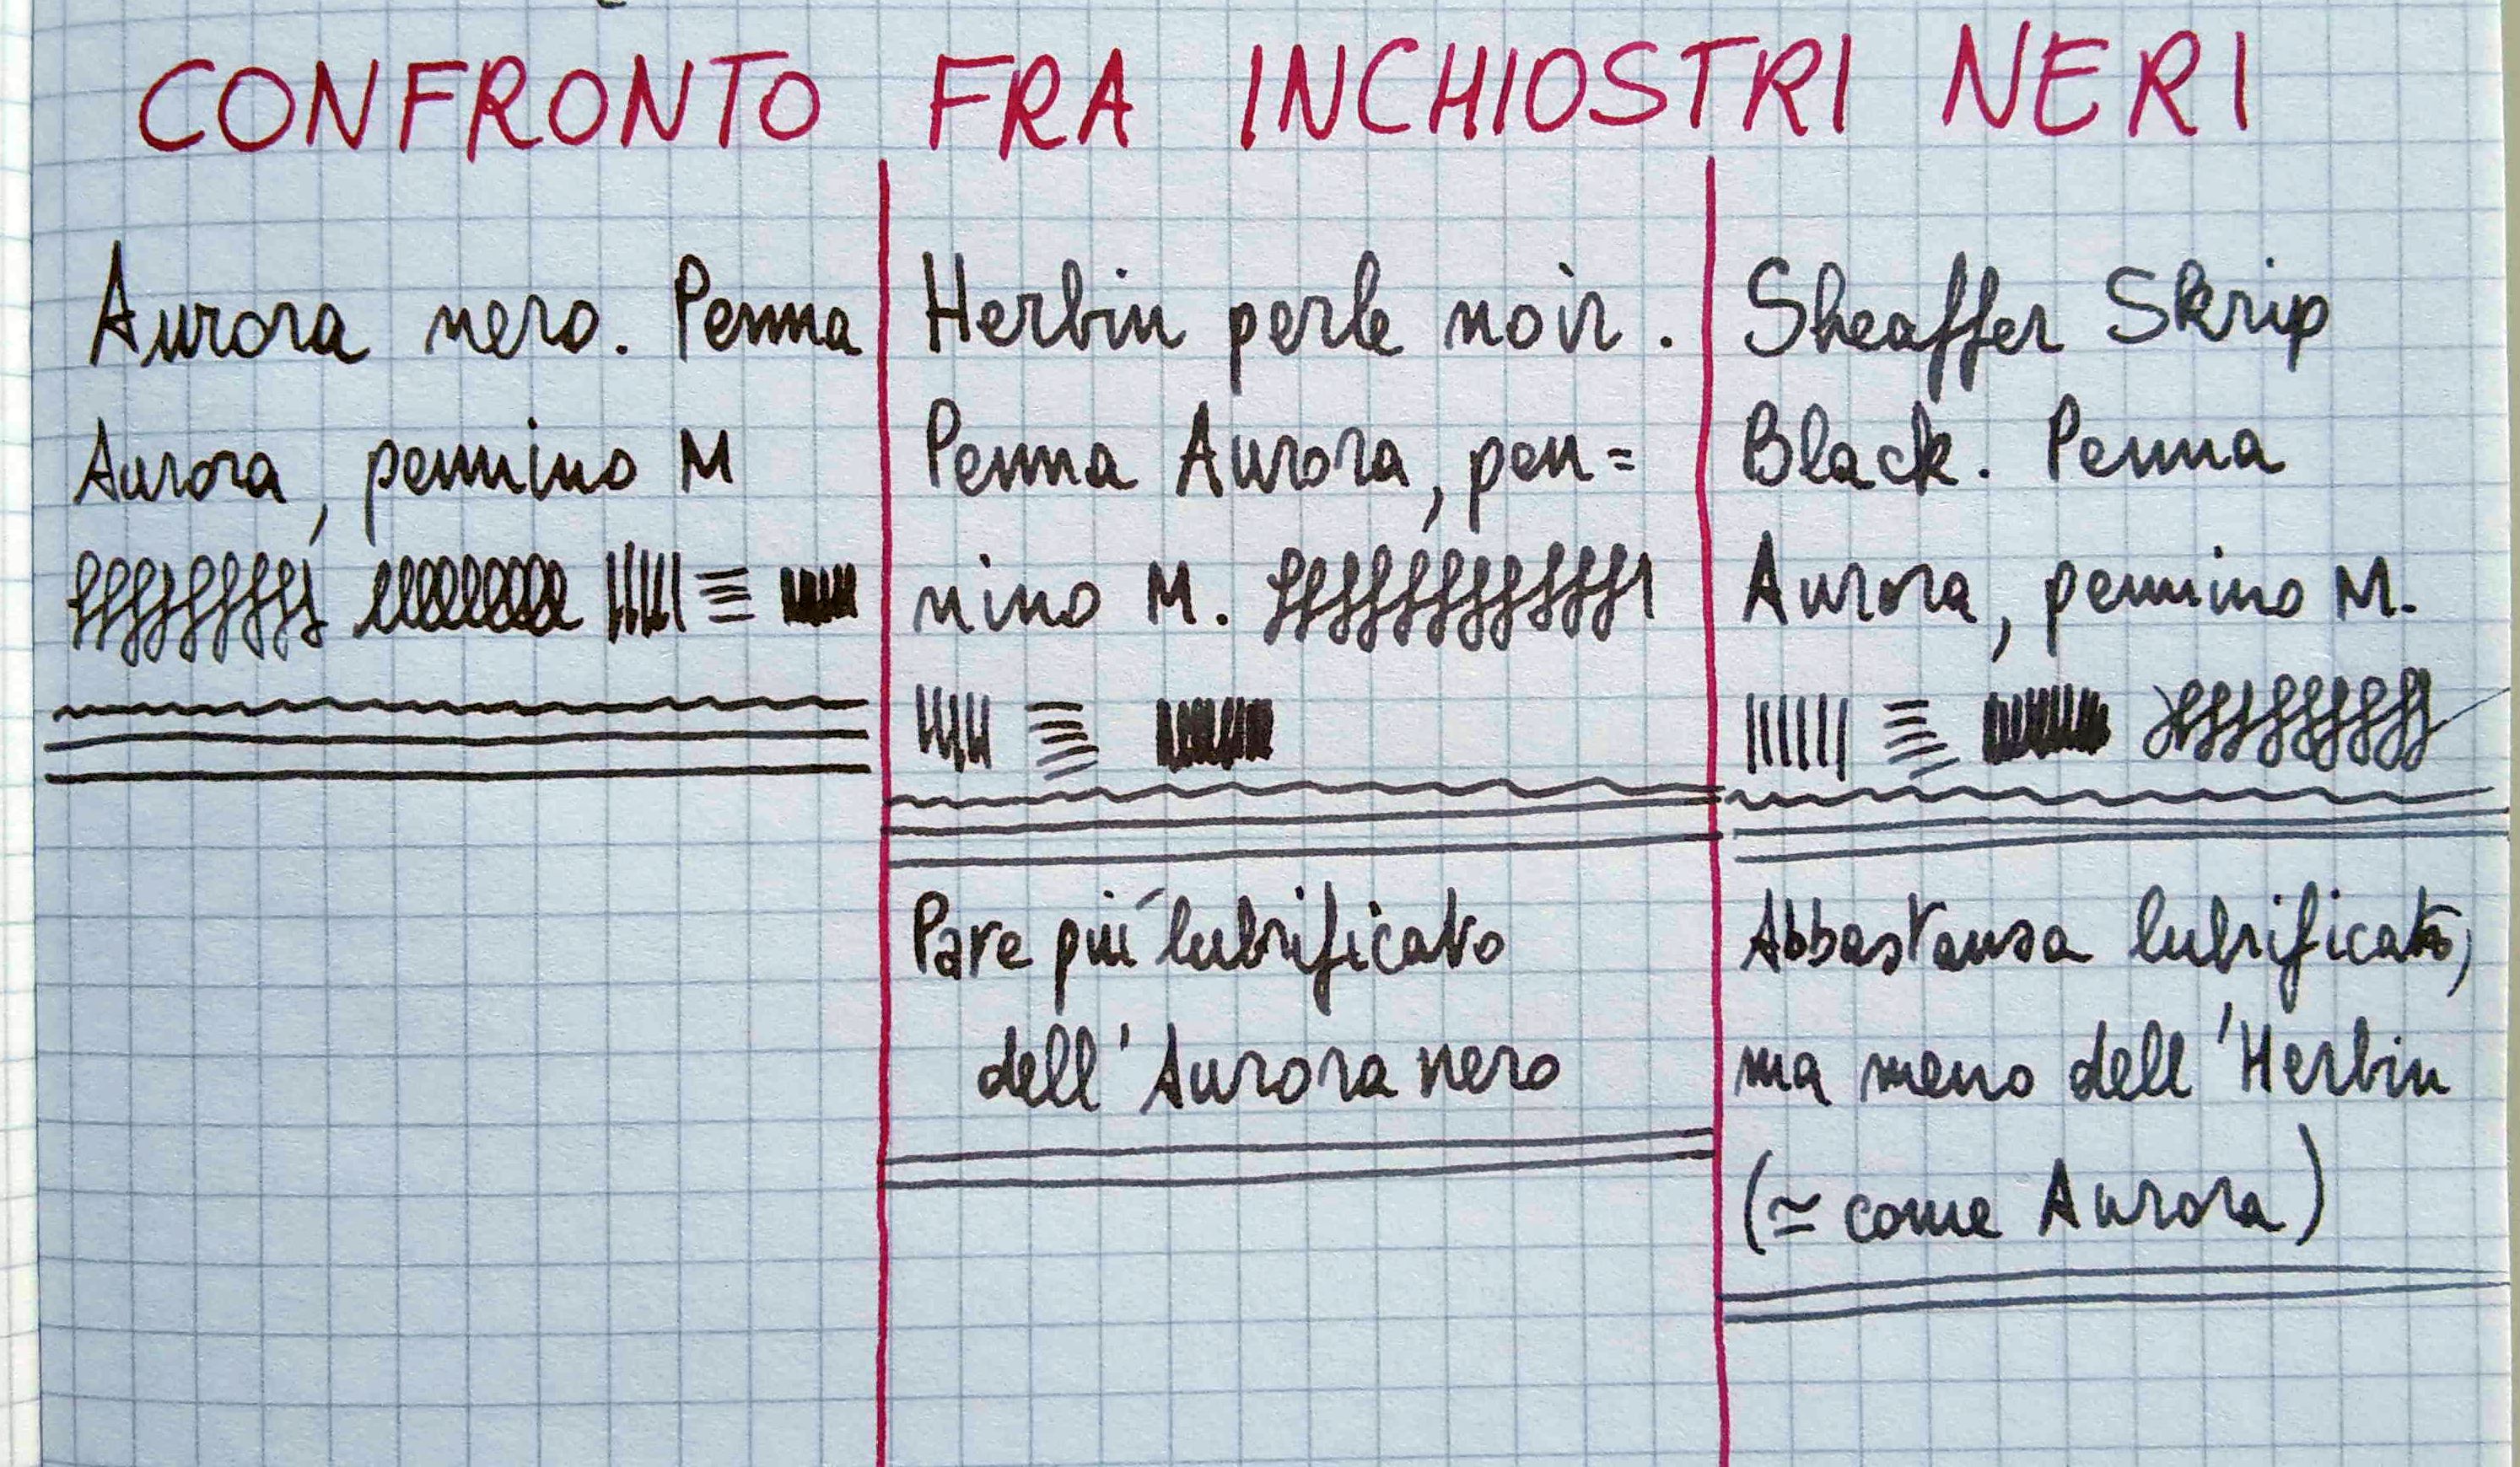 CONFRONTO FRA INCHIOSTRI NERI
Aurora nero. Penna
Aurora, pennino M
Herbin perle noir.
Penna Aurora, pen=
nino M.
Pare più lubrificato
dell'Aurora nero
Sheaffer Skrip
Black. Penna
Aurora, pennino M.
Abbastanza lubrificato,
ma meno dell'Herbin
(≃ come Aurora)